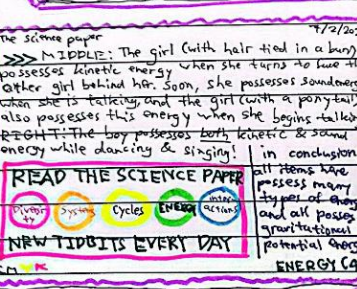 The science paper
4/2/20
>>> MIDDLE: The girl (with hair tied in a bun)
possesses kinetic energy when she turns to face the
other girl behind her. Soon, she possesses sound energy
when she is talking, and the girl (with a ponytail)
also possesses this energy when she begins talking
RIGHT: The boy possesses both kinetic & sound
energy while dancing & singing!
READ THE SCIENCE PAPER
Diversity
Systems
Cycles
ENERGY
Interactions
NEW TIDBITS EVERY DAY
in conclusion
all items here
possess many
types of energ
and all posses
gravitational
potential energ
ENERGY CA